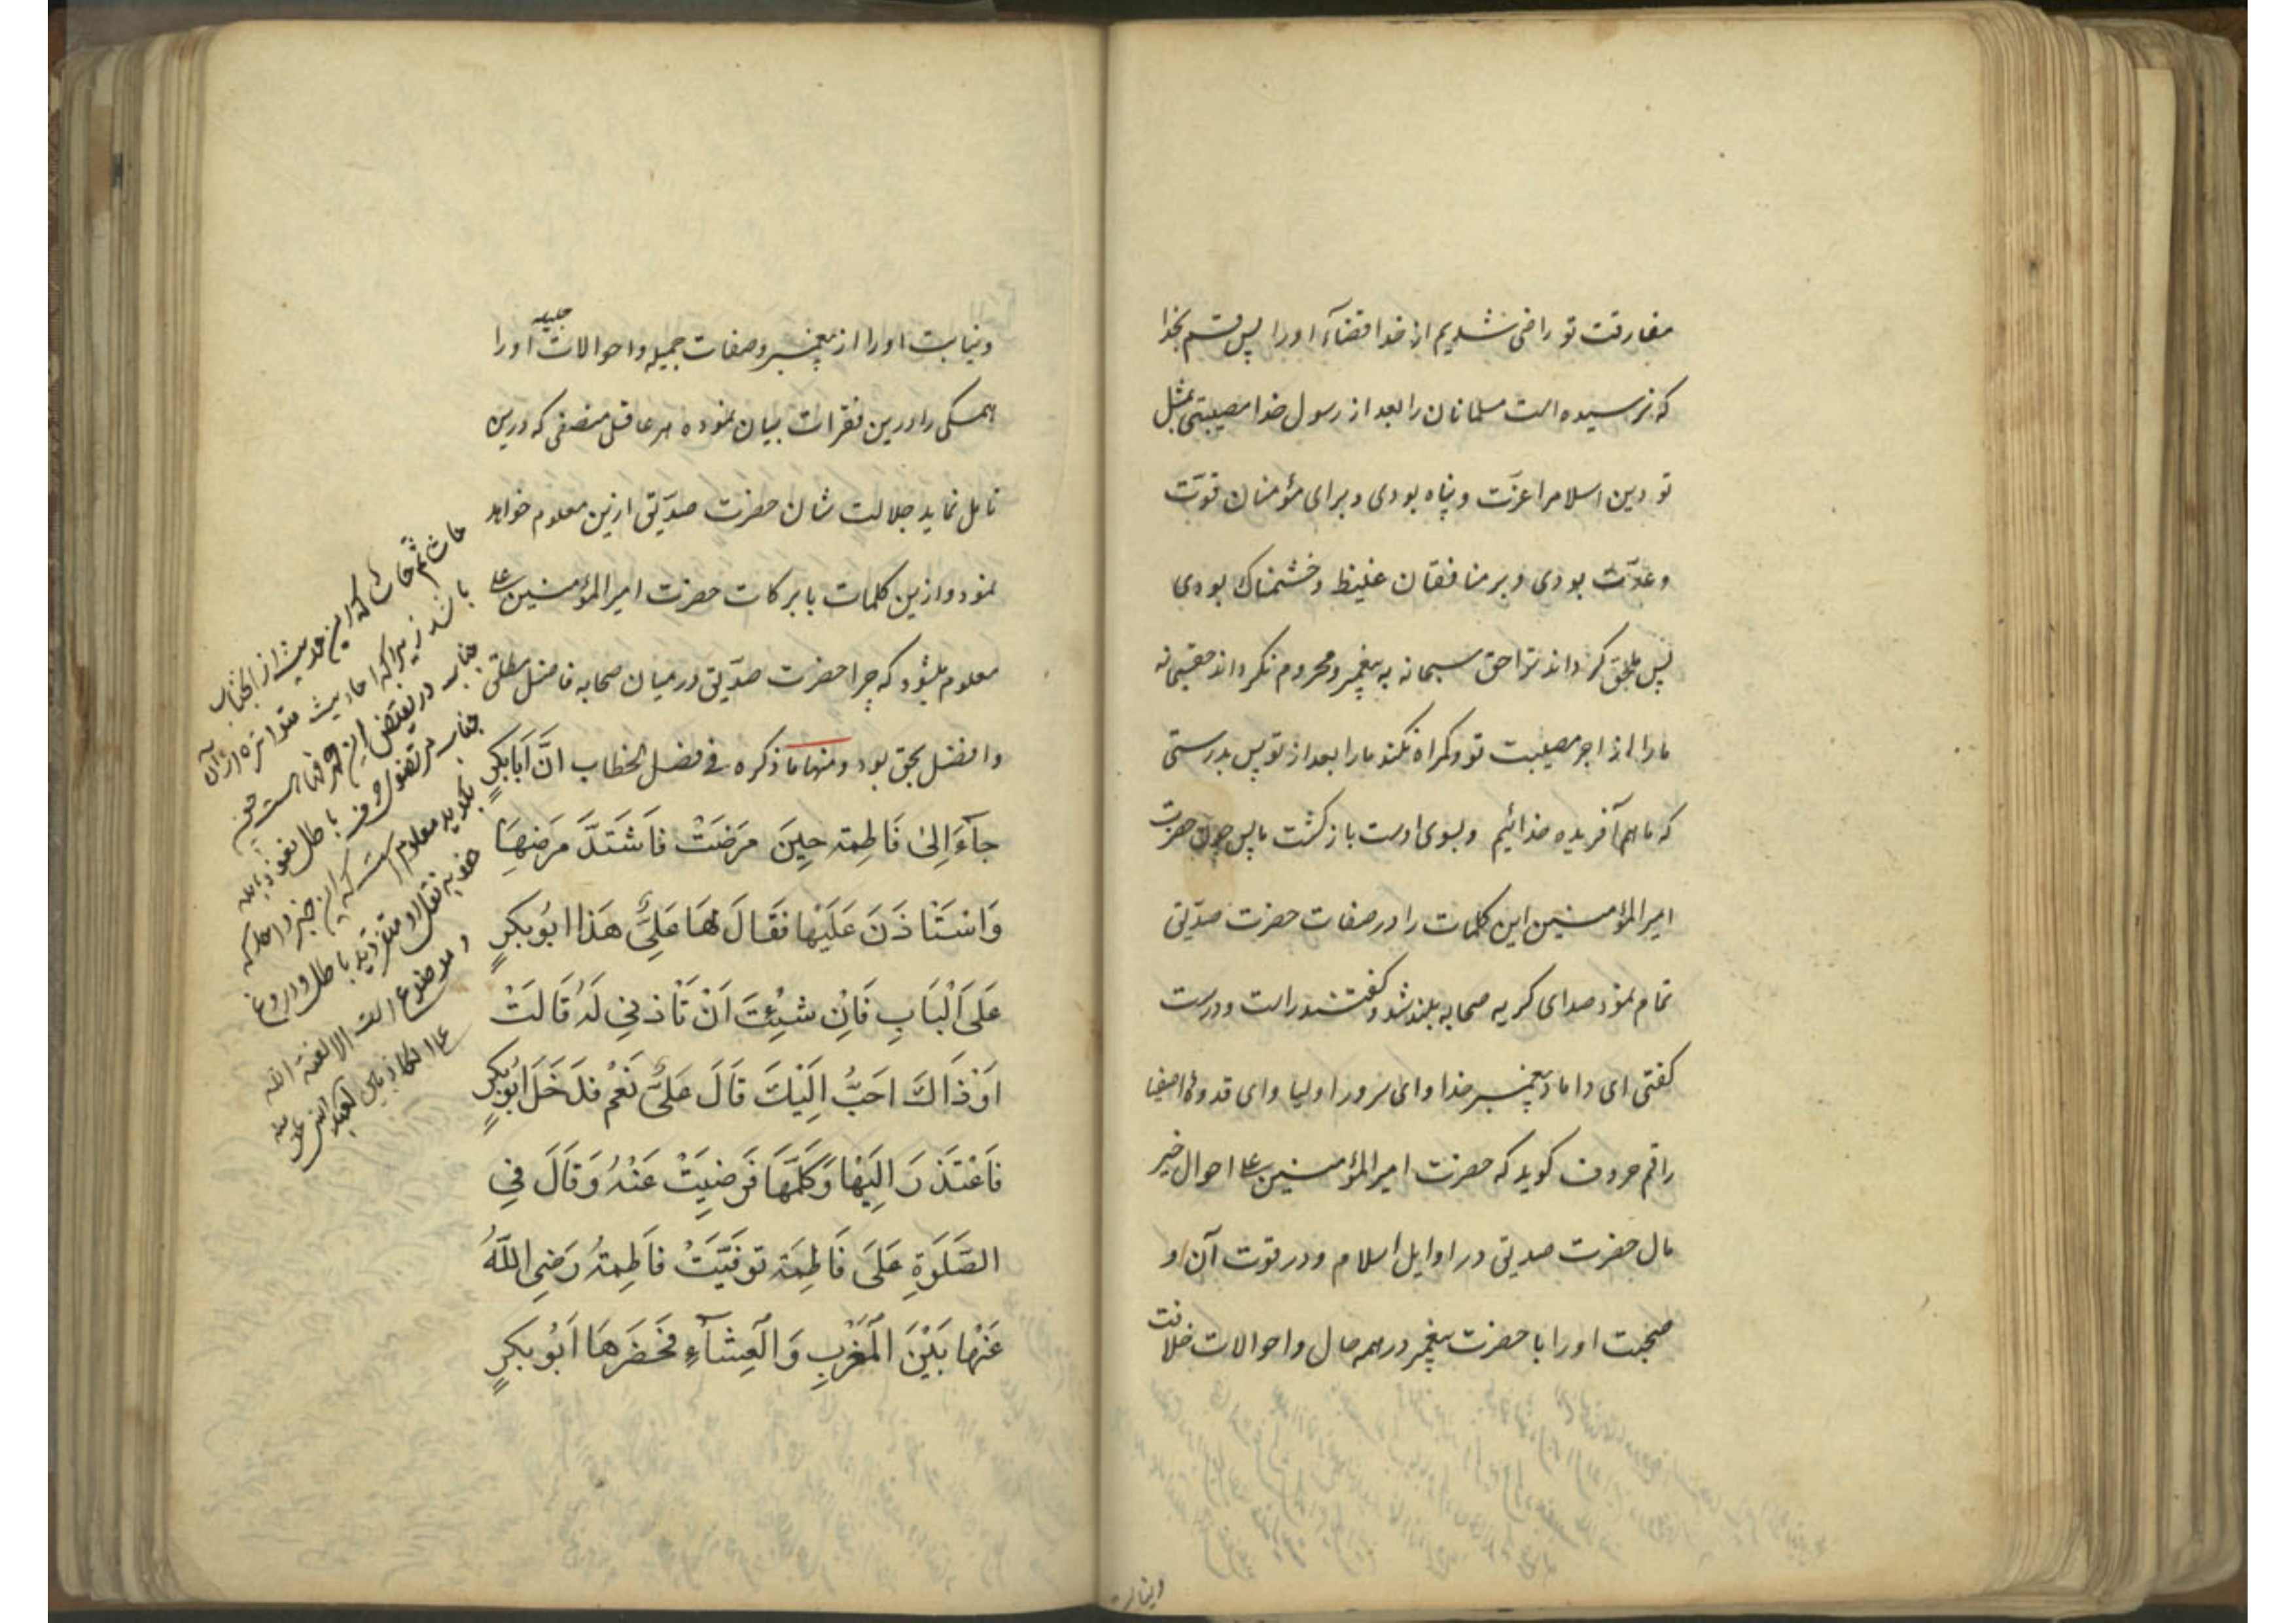 مفارقت تو راضی شدیم از خدا قضاء اورا پس قسم بخدا
که نرسیده است مسلمانان را بعد از رسول خدا مصیبتی مثل
تو دین اسلام را عزّت و پناه بودی و برای مؤمنان قوّت
و عدّت بودی و بر منافقان غلیظ و خشمناک بودی
پس ملحق کرداند ترا حق سبحانه به پیغمبر و محروم نکرداند حقسبحانه
مارا از اجر مصیبت تو و کمراه نکند مارا بعد از تو پس بدرستی
که ما هم آفریده خدائیم و بسوی اوست بازکشت ما پس چون حضرت
امیر المؤمنین این کلمات را در صفات حضرت صدّیق
تمام نمود صدای کریه صحابه بلند شد و کفتند راست و درست
کفتی ای داماد پیغمبر خدا و ای سرور اولیا و ای قدوهٔ اصفیا
راقم حروف کوید که حضرت امیر المؤمنین علی احوال خیر
مال حضرت صدیق در اوایل اسلام و در قوت آن و
صحبت اورا با حضرت پیغمبر در همه حال و احوالات خلافت
ونیابت
ونیابت اورا از پیغمبر و صفات جمیله و احوالات اورا
همکی را درین فقرات بیان نموده هر عاقل منصفی که درین
تامل نماید جلالت شان حضرت صدّیق ازین معلوم خواهد
نمود و ازین کلمات با برکات حضرت امیر المؤمنین علی
معلوم میشود که چرا حضرت صدّیق در میان صحابه فاضل مطلق
وافضل بحق بود ومنها ما ذکره فی فصل الخطاب انَّ اَبَابَکرٍ
جآءَ اِلیٰ فَاطِمة حِینَ مَرَضَتْ فَاشَتَدَّ مَرَضهَا
وَاسْتَاذَنَ عَلَیْها فَقَالَ لهَا عَلِیٌّ هَذا ابُوبکرٍ
عَلَی الْبَابِ فَاِنْ شِئْتَ اَنْ تَاْذَنِی لَهُ قَالَتْ
اَوْذَاكَ احَبُّ اِلَیْكَ قَالَ عَلِیٌّ نَعْم فَدَخَلَ ابُوبکرٍ
فَاعْتَذَرَ اِلَیْهَا وَکَلَّمَهَا فَرَضِیَتْ عَنْهُ وَقَالَ فِي
الصَّلَوةِ عَلَی فَاطِمَة تُوفِّیَتْ فَاطِمةُ رَضِی اللّٰهُ
عَنْها بَیْنَ الْمَغْرِبِ وَالْعِشَآءِ فَحَضَرهَا اَبُوبکرٍ
حاش ثم حاش که این حدیث از انجناب
باشد زیرا که احادیث متواتره از آن
جناب در نقیض این
جناب مرتضوی باطل نعوذ بالله
معلوم است که این خبر
باطل و دروغ
وموضوع است الا لعنة الله
علی الکاذبین